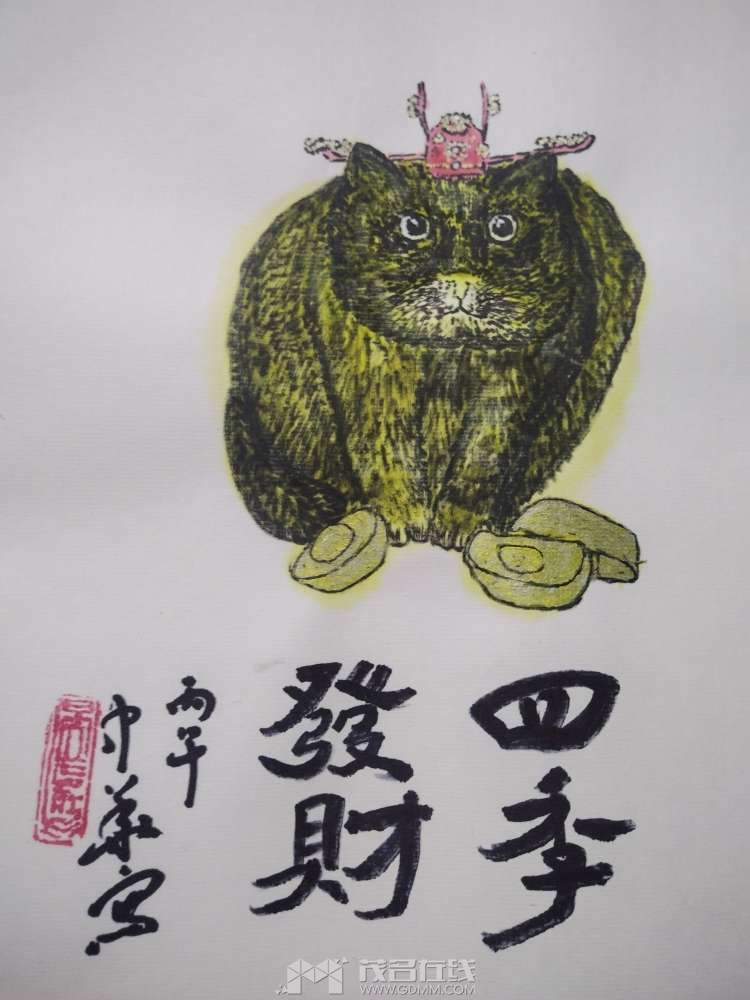 四季
發財
丙午
守華寫
茂名在线
WWW.GDMM.COM